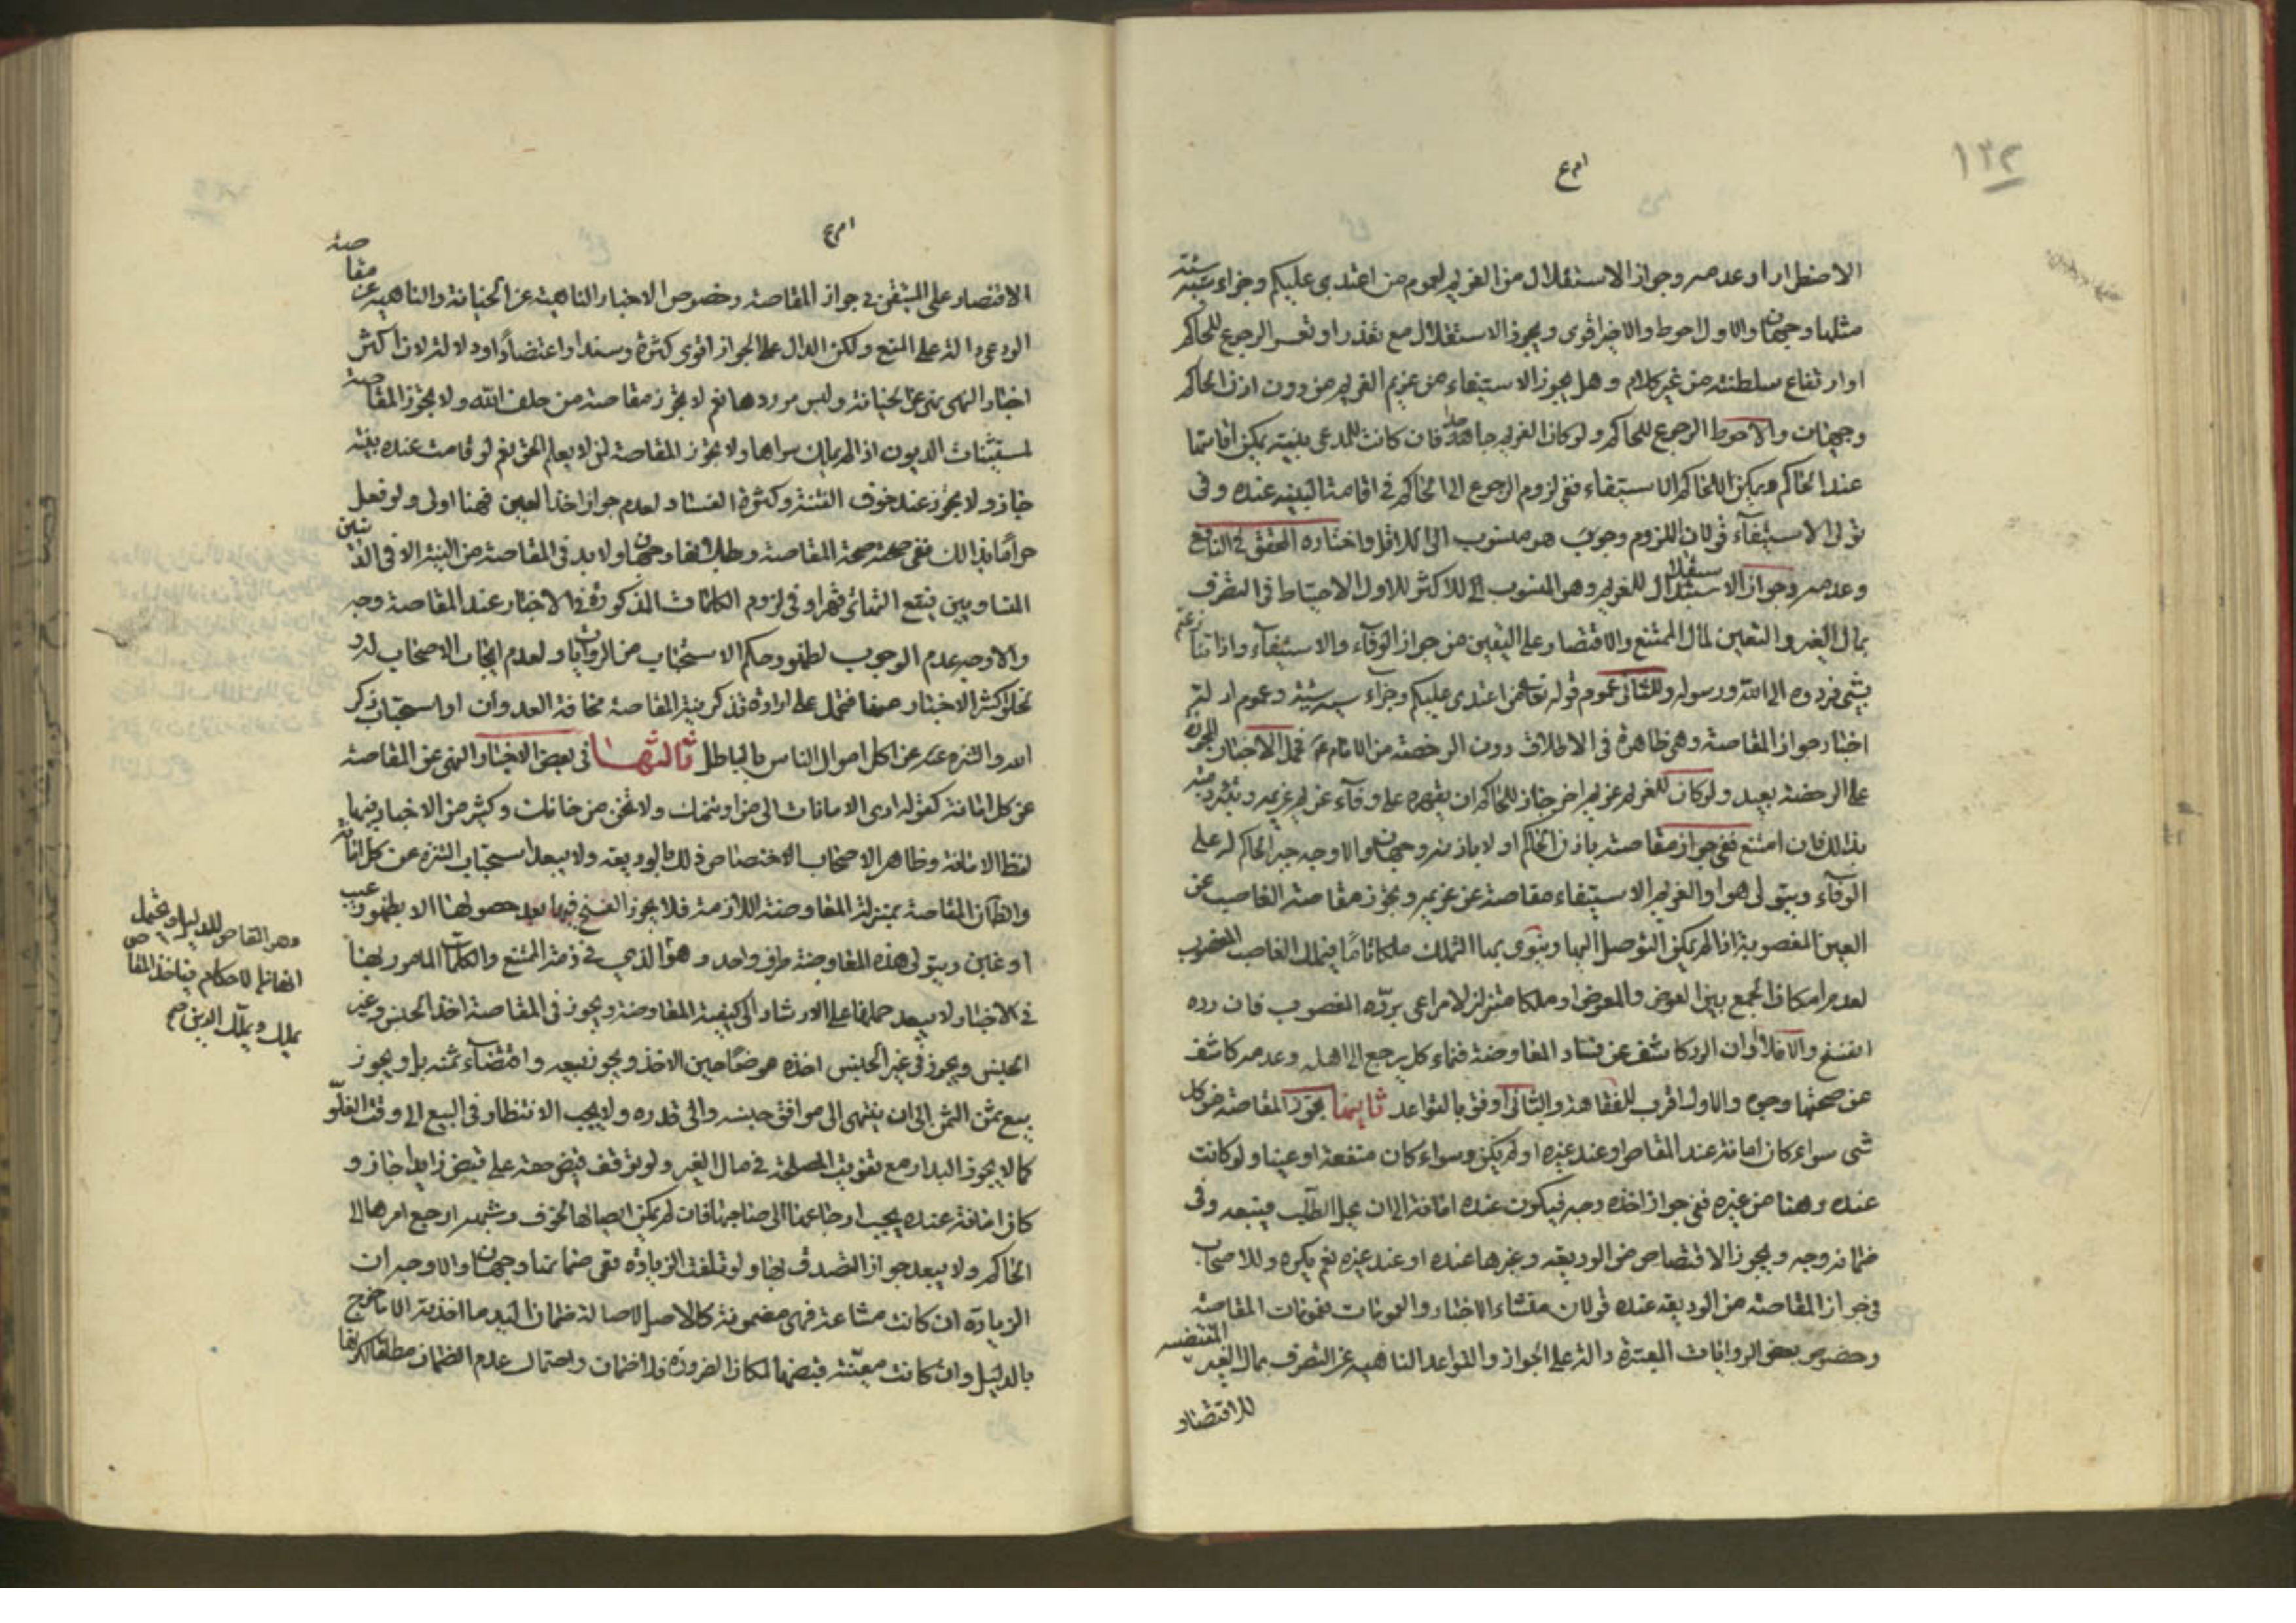 ١٣٢
الاضطرار او عدمه وجواز الاستقلال من الغريم لعموم من اعتدى عليكم وجزاء سيئة سيئة
مثلها وجهان والاول احوط والاخير اقوى ويجوز الاستقلال مع تعذر او تعسر الرجوع للحاكم
او ارتفاع سلطنته من غير كلام وهل يجوز الاستيفاء من غريم الغريم من دون اذن الحاكم
وجهان والاحوط الرجوع للحاكم ولو كان الغريم جاحدا فان كانت للمدعي بينة يمكن اقامتها
عند الحاكم ويمكن للحاكم الاستيفاء ففي لزوم الرجوع الى الحاكم في اقامة البينة عنده وفي
تولي الاستيفاء قولان اللزوم وجوبه هو منسوب الى الاقل واختاره المحقق في النافع
وعدمه وجواز الاستقلال للغريم وهو المنسوب الى الاكثر للاول الاحتياط في التصرف
بمال الغير والتعيين لمال الممتنع والاقتصار على اليقين من جواز الوفاء والاستيفاء واذا تنازعتم
بشي فردوه الى الله ورسوله وللثاني عموم قوله تعالى من اعتدى عليكم وجزاء سيئة سيئة وعموم ادلة
اخبار جواز المقاصة وهي ظاهرة في الاطلاق دون الرخصة من الامام ع فحمل الاخبار المجوزة
على الرخصة بعيد ولو كان للغريم غريم اخر جاز للحاكم ان يقهره على وفاء غريم غريمه
بذلك فان امتنع ففي جواز مقاصته باذن الحاكم او لا باذنه وجهان والاوجه جبر الحاكم له على
الوفاء ويتولى هو او الغريم الاستيفاء مقاصة عن غريمه ويجوز مقاصة الغاصب عن
العين المغصوبة اذا لم يمكن التوصل اليها وينوي بها التملك ملكا تاما فيملك الغاصب المغصوب
لعدم امكان الجمع بين العوض والمعوض او ملكا متزلزلا مراعى برده المغصوب فان رده
انفسخ والا فلا او ان الرد كاشف عن فساد المعاوضة فنماء كل يرجع الى اهله وعدمه كاشف
عن صحتها وجوه والاول اقرب للفقاهة والثاني اوفق بالقواعد ثانيها يجوز المقاصة من كل
شي سواء كان امانة عند المقاص او عند غيره او لم يكن وسواء كان منفعة او عينا ولو كانت
عنده وهنا من غيره ففي جواز اخذه وجه فيكون عنده امانة الى ان يحل الطلب فيتبعه وفي
ضمانه وجه ويجوز الاقتصاص من الوديعة وغيرها عنده او عند غيره نعم يكره وللاصحاب
في جواز المقاصة من الوديعة عنده قولان منشاء الاخبار والعمومات فعمومات المقاصة
وخصوص بعض الروايات المعتبرة دالة على الجواز والقواعد الناهية عن التصرف بمال الغير المقتضية
للاقتصار
الاقتصار على المتيقن في جواز المقاصة وخصوص الاخبار الناهية عن الخيانة والناهية عن مقاصة
الودعي دالة على المنع ولكن الدال على الجواز اقوى كثرة وسندا واعتضادا ودلالة لان اكثر
اخبار النهي نهي عن الخيانة وليس موردها نعم لا يجوز مقاصة من حلف الله ولا يجوز المقاصة
لمستثنيات الديون اذا لم يملك سواها ولا يجوز المقاصة لمن لا يعلم الحق نعم لو قامت عنده بينة
جاز ولا يجوز عند خوف الفتنة وكثرة الفساد لعدم جواز اخذ العين فهنا اولى ولو فعل
حراما بذلك ففي صحة المقاصة وبطلانها وجهان ولا بد في المقاصة من النية الا في النقدين
المتساويين فيقع التهاتر قهرا وفي لزوم الكلمات المذكورة في الاخبار عند المقاصة وجه
والاوجه عدم الوجوب لظهور حكم الاستحباب من الروايات ولعدم ايجاب الاصحاب له و
لخلو اكثر الاخبار عنها فتحمل على ارادة تذكر نية المقاصة مخافة العدوان او استحباب ذكر
الله والتنزه عن اكل اموال الناس بالباطل ثالثها في بعض الاخبار النهي عن المقاصة
عن كل امانة كقوله ادى الامانات الى من اوتمنك ولا تخن من خانك وكثير من الاخبار فيها
لفظ الامانة وظاهر الاصحاب الاختصاص ذلك بالوديعة ولا يبعد استحباب التنزه عن كل امانة
والظاهر ان المقاصة بمنزلة المعاوضة اللازمة فلا يجوز الفسخ فيها بعد حصولها الا بظهور عيب
او غبن ويتولى هذه المعاوضة طرف واحد وهو الذي في ذمة الممتنع والكلمات المامور بها
في الاخبار لا يبعد حملها على الارشاد الى كيفية المعاوضة ويجوز في المقاصة اخذ الجنس وغير
الجنس ويجوز في غير الجنس اخذه عوضا حين الاخذ ويجوز بيعه واقتضاء ثمنه بل ويجوز
بيع ثمن الثمن الى ان ينتهي الى موافق جنسه والى قدره ولا يجب الانتظار في البيع الى وقت الغلو
كما لا يجوز البدار مع تفويت المصلحة في مال الغير ولو توقف قبض حقه على قبض زايد جاز و
كان امانة عنده يجب ارجاعها الى صاحبها فان لم يمكن ايصالها لخوف وشبهه ارجع امرها الى
الحاكم ولا يبعد جواز التصدق بها ولو تلفت الزيادة ففي ضمانها وجهان والاوجه ان
الزيادة ان كانت مشاعة فهي مضمونة كالاصل لاصالة ضمان اليد ما اخذته الا ما خرج
بالدليل وان كانت معينة فقبضها لمكان الضرورة فلا ضمان واحتمال عدم الضمان مطلقا لكونها